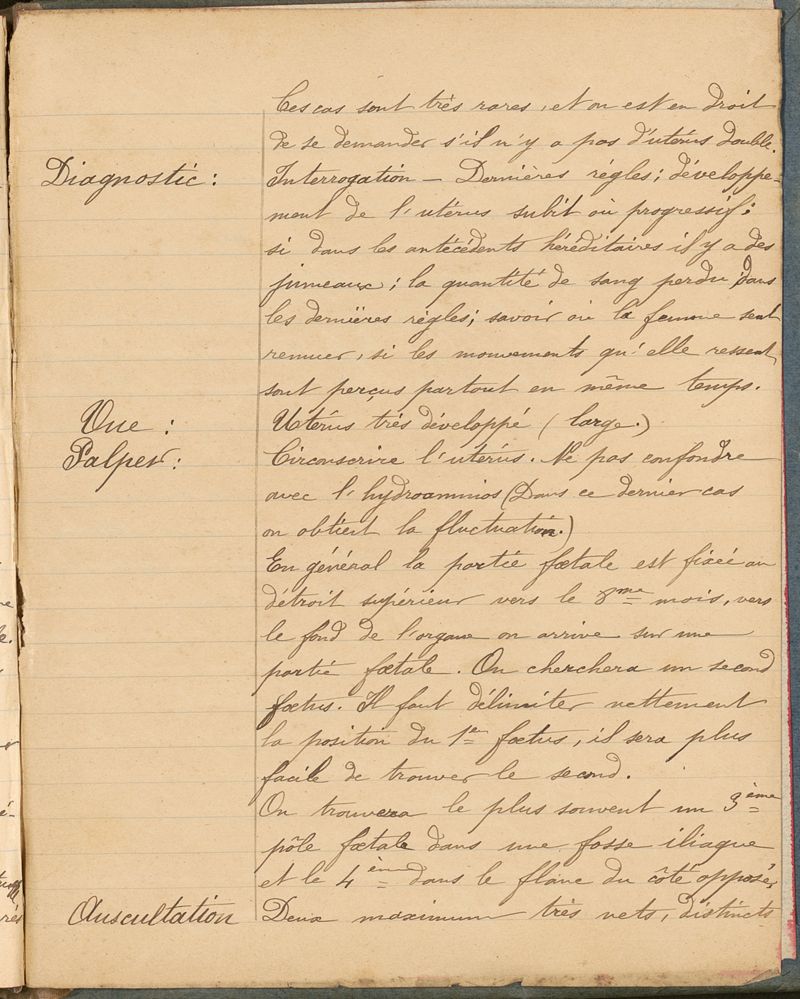 Ces cas sont très rares, et on est en droit
de se demander s'il n'y a pas d'utérus double.
Diagnostic : Interrogation — Dernières règles ; développe-
ment de l'utérus subit ou progressif ;
si dans les antécédents héréditaires il y a des
jumeaux ; la quantité de sang perdu dans
les dernières règles ; savoir où la femme sent
remuer, si les mouvements qu'elle ressent
sont perçus partout en même temps.
Vue : Utérus très développé (large.)
Palper : Circonscrire l'utérus. Ne pas confondre
avec l'hydroamnios (Dans ce dernier cas
on obtient la fluctuation.)
En général la partie fœtale est fixée au
détroit supérieur vers le 8me mois, vers
le fond de l'organe on arrive sur une
partie fœtale. On cherchera un second
fœtus. Il faut délimiter nettement
la position du 1er fœtus, il sera plus
facile de trouver le second.
On trouvera le plus souvent un 3ème
pôle fœtale dans une fosse iliaque
et le 4ème dans le flanc du côté opposé,
Auscultation Deux maximum très nets, distincts